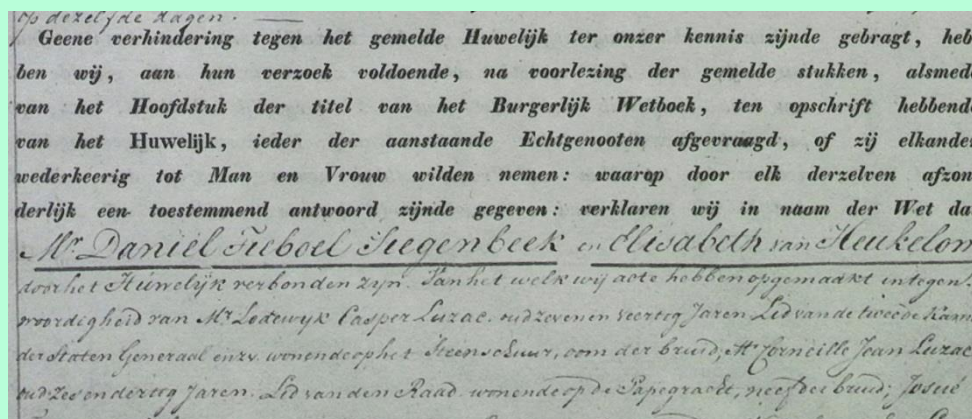 op dezelfde dagen.
Geene verhindering tegen het gemelde Huwelijk ter onzer kennis zijnde gebragt, heb
ben wij, aan hun verzoek voldoende, na voorlezing der gemelde stukken, alsmede
van het Hoofdstuk der titel van het Burgerlijk Wetboek, ten opschrift hebbende
van het Huwelijk, ieder der aanstaande Echtgenooten afgevraagd, of zij elkander
wederkeerig tot Man en Vrouw wilden nemen: waarop door elk derzelven afzon
derlijk een toestemmend antwoord zijnde gegeven: verklaren wij in naam der Wet da
Mr Daniël Tieboel Siegenbeek en Elisabeth van Heukelom
door het Huwelijk verbonden zyn. Van het welk wij acte hebben opgemaakt in tegen
woordigheid van Mr Lodewyk Casper Luzac. oud zeven en veertig Jaren Lid van de tweede Kam
der Staten Generaal enz. wonende op het Steenschuur, oom der bruid, Mr Corneille Jean Luzac
oud zes en dertig Jaren. Lid van den Raad. wonende op de Papegracht, neef der bruid; Josué